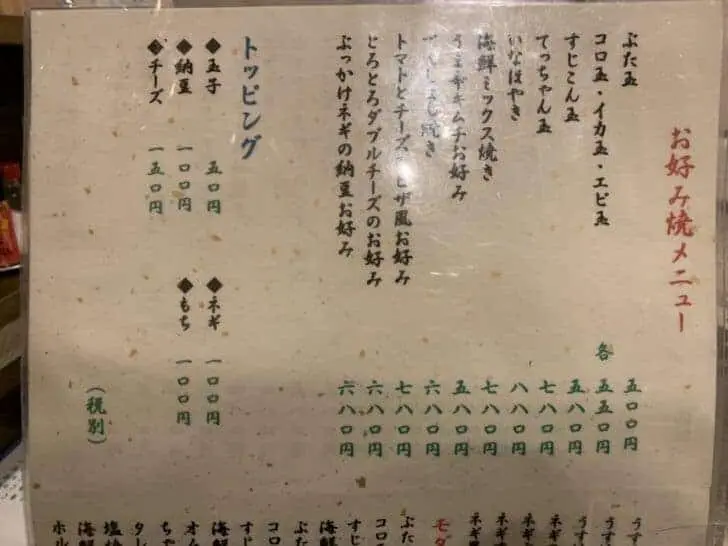 お好み焼メニュー
ぶた玉 五〇〇円
コロ玉・イカ玉・エビ玉 各 五五〇円
すじこん玉 五八〇円
てっちゃん玉 七八〇円
いなほやき 八八〇円
海鮮ミックス焼き 七八〇円
キムチお好み 五八〇円
焼き 六八〇円
トマトとチーズのピザ風お好み 七八〇円
とろとろダブルチーズのお好み 六八〇円
ぶっかけネギの納豆お好み 六八〇円
トッピング
◆玉子 五〇円
◆ネギ 一〇〇円
◆納豆 一〇〇円
◆もち 一〇〇円
◆チーズ 一五〇円
（税別）
うす
うす
うす
ネギ
ネギ
ネギ
ネギ
モダ
ぶた
コロ
すじ
海鮮
ぶた
コロ
すじ
海鮮
オム
ちゃ
タレ
塩
海鮮
ホル